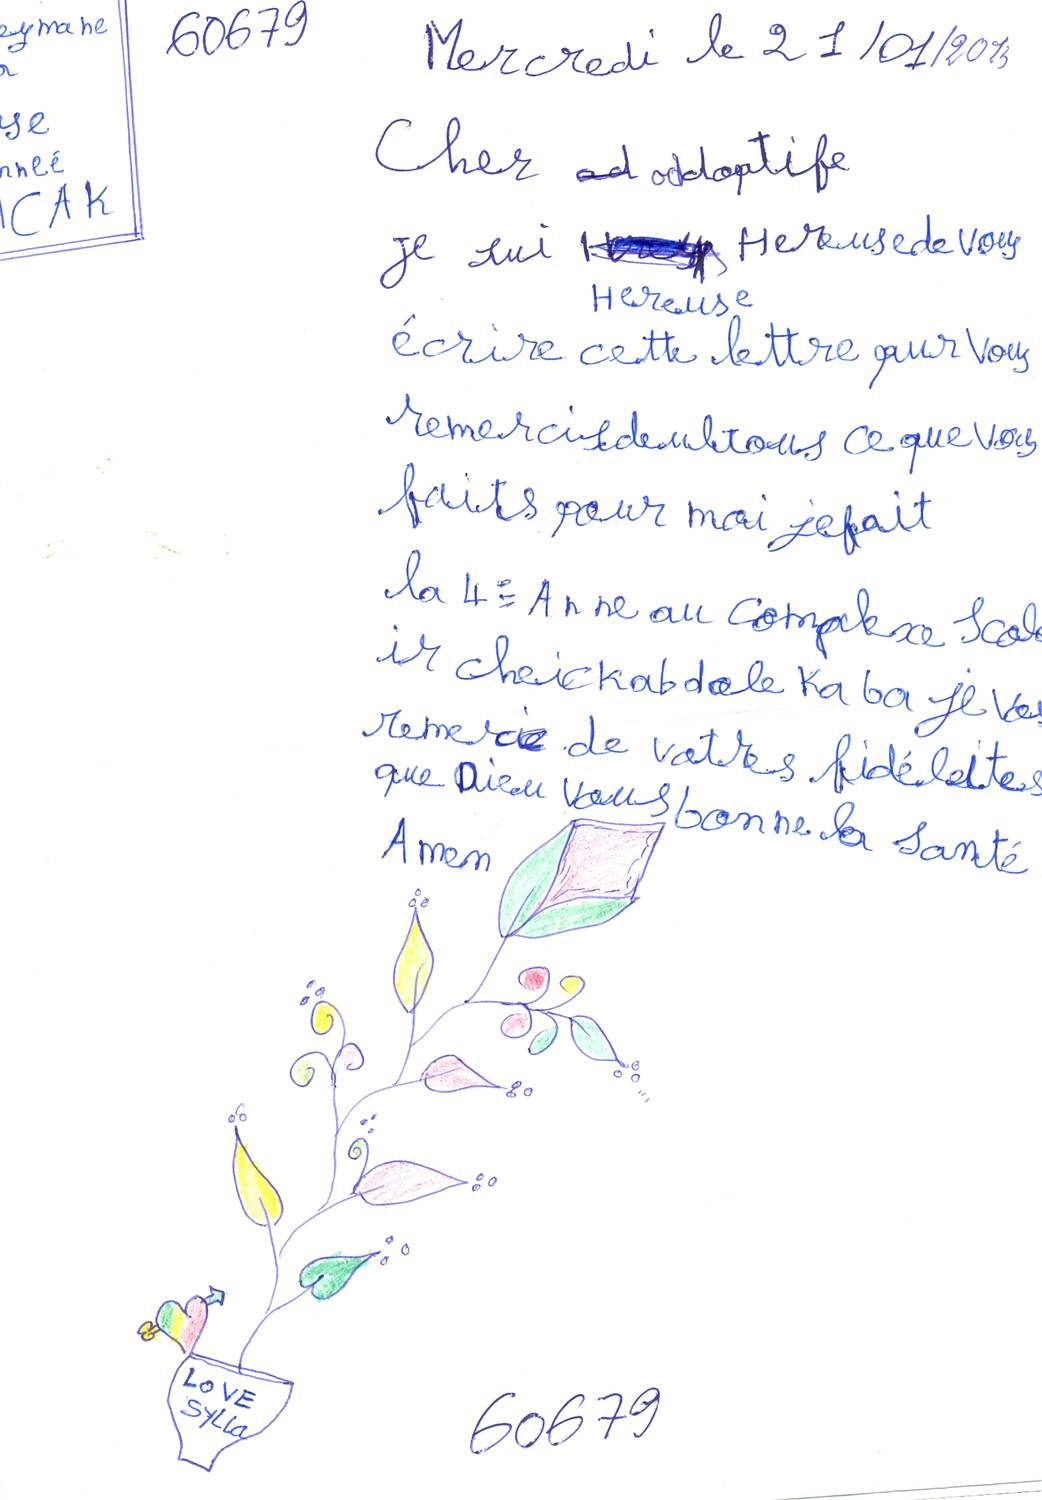 60679
Mercredi le 21/01/2013
CAK
Cher adoptife
je sui Hereuse de Vous
Hereuse
écrire cette lettre pour Vous
remercis de tous ce que Vous
faits pour moi je fait
la 4e Anne au Complexe Scola
ir cheick abdole Kaba je Vous
remercie de votres fidéleites
que Dieu vous bonne la santé
Amen
LOVE
Sylla
60679